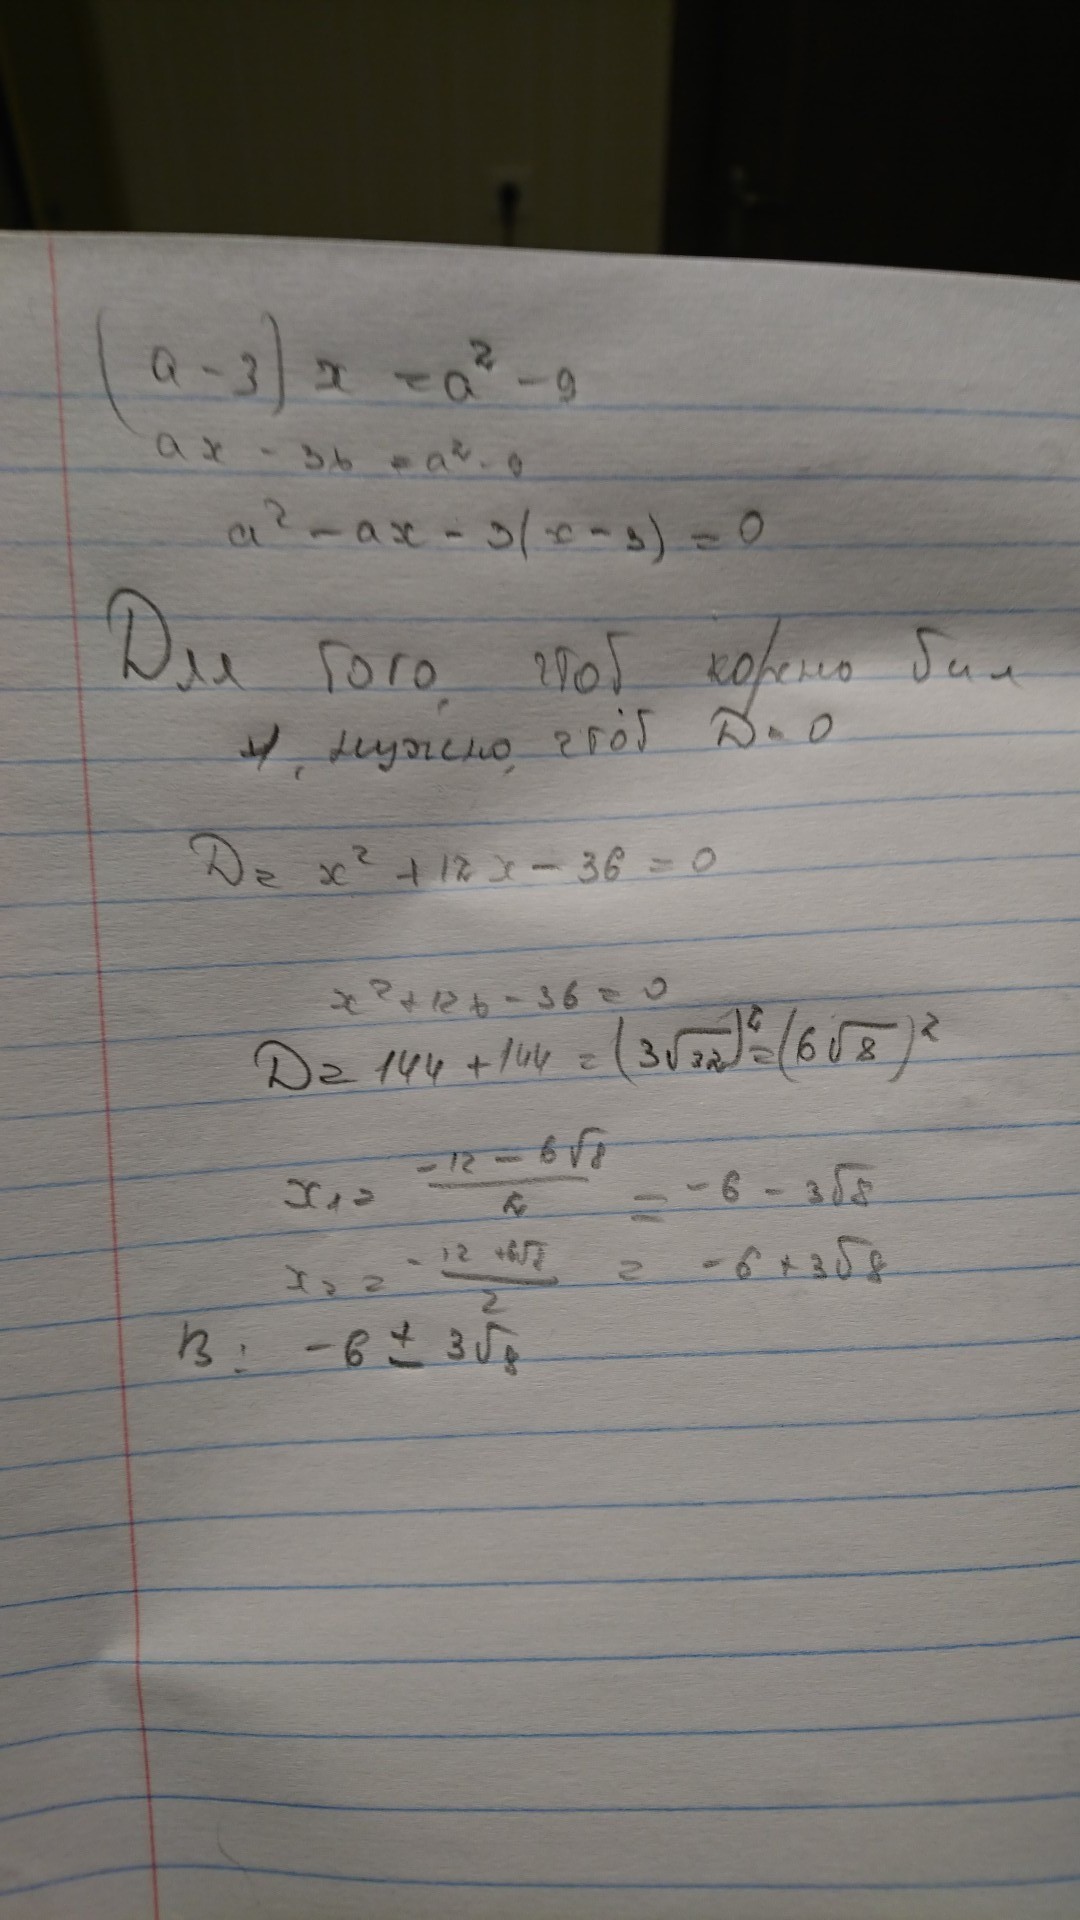 (a - 3) x = a² - 9
ax - 3x = a² - 9
a² - ax - 3(x - 3) = 0
Для того, чтоб корень был
1, нужно, чтоб D = 0
D = x² + 12x - 36 = 0
x² + 12x - 36 = 0
D = 144 + 144 = (3√32)² = (6√8)²
x₁ = (-12 - 6√8)/2 = -6 - 3√8
x₂ = (-12 + 6√8)/2 = -6 + 3√8
В: -6 ± 3√8